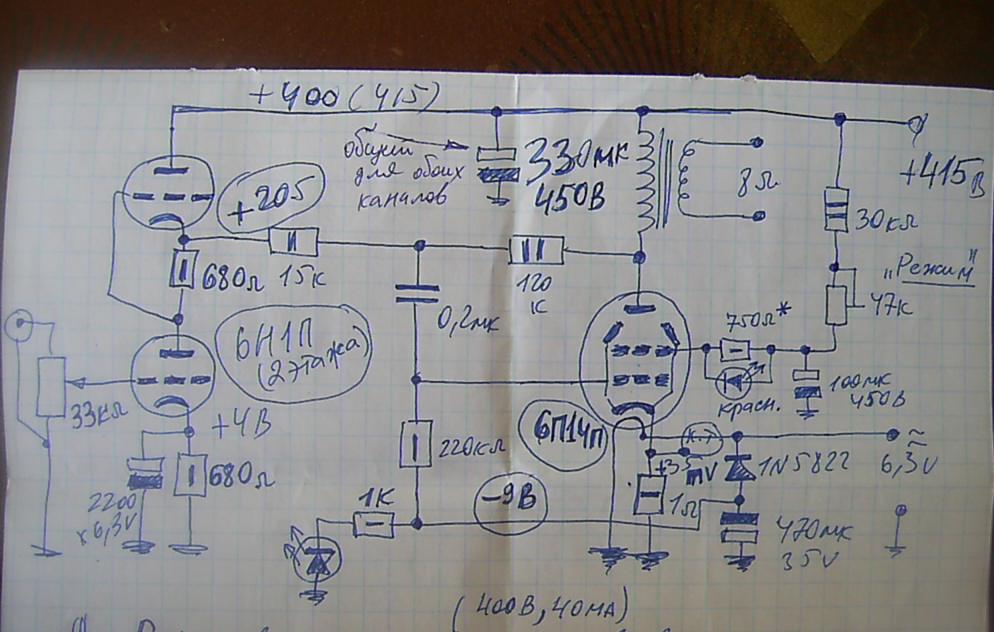 +400 (415)
общий
для обоих
каналов
330мк
450В
8Ω
+415В
30кΩ
„Режим"
47к
+205
680Ω
15к
120
к
0,2мк
6Н1П
(2 этажа)
750Ω*
красн.
100мк
450В
33кΩ
+4В
680Ω
2200
х6,3V
220кΩ
6П14П
к.т
+35
mV
1Ω
1N5822
≈
6,3V
470мк
35V
-9В
1К
(400В, 40мА)